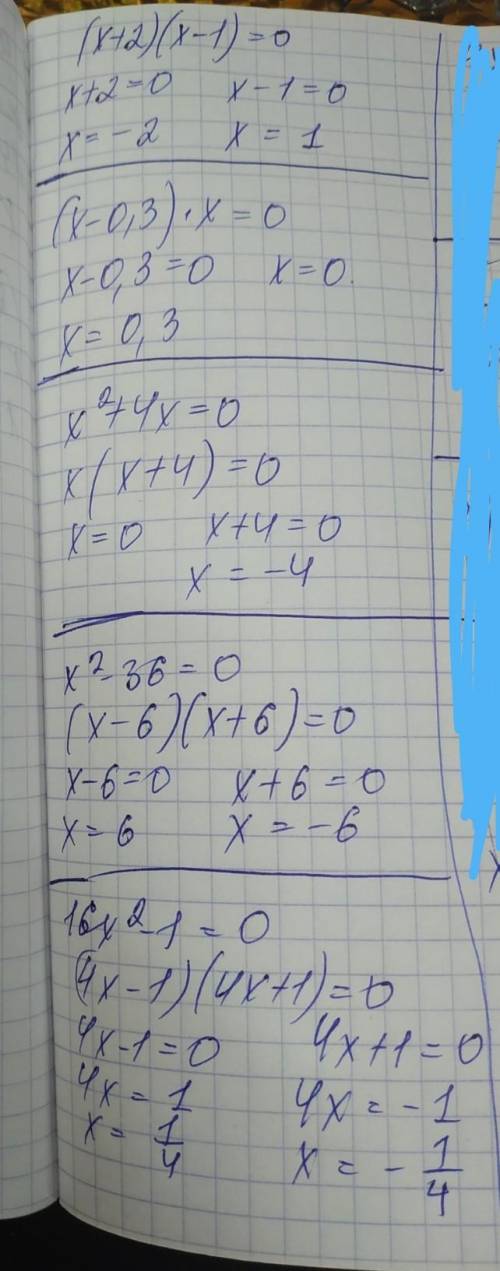 (x+2)(x-1)=0
x+2=0 x-1=0
x=-2 x=1
(x-0,3)·x=0
x-0,3=0 x=0.
x=0,3
x²+4x=0
x(x+4)=0
x=0 x+4=0
x=-4
x²-36=0
(x-6)(x+6)=0
x-6=0 x+6=0
x=6 x=-6
16x²-1=0
(4x-1)(4x+1)=0
4x-1=0 4x+1=0
4x=1 4x=-1
x=1/4 x=-1/4